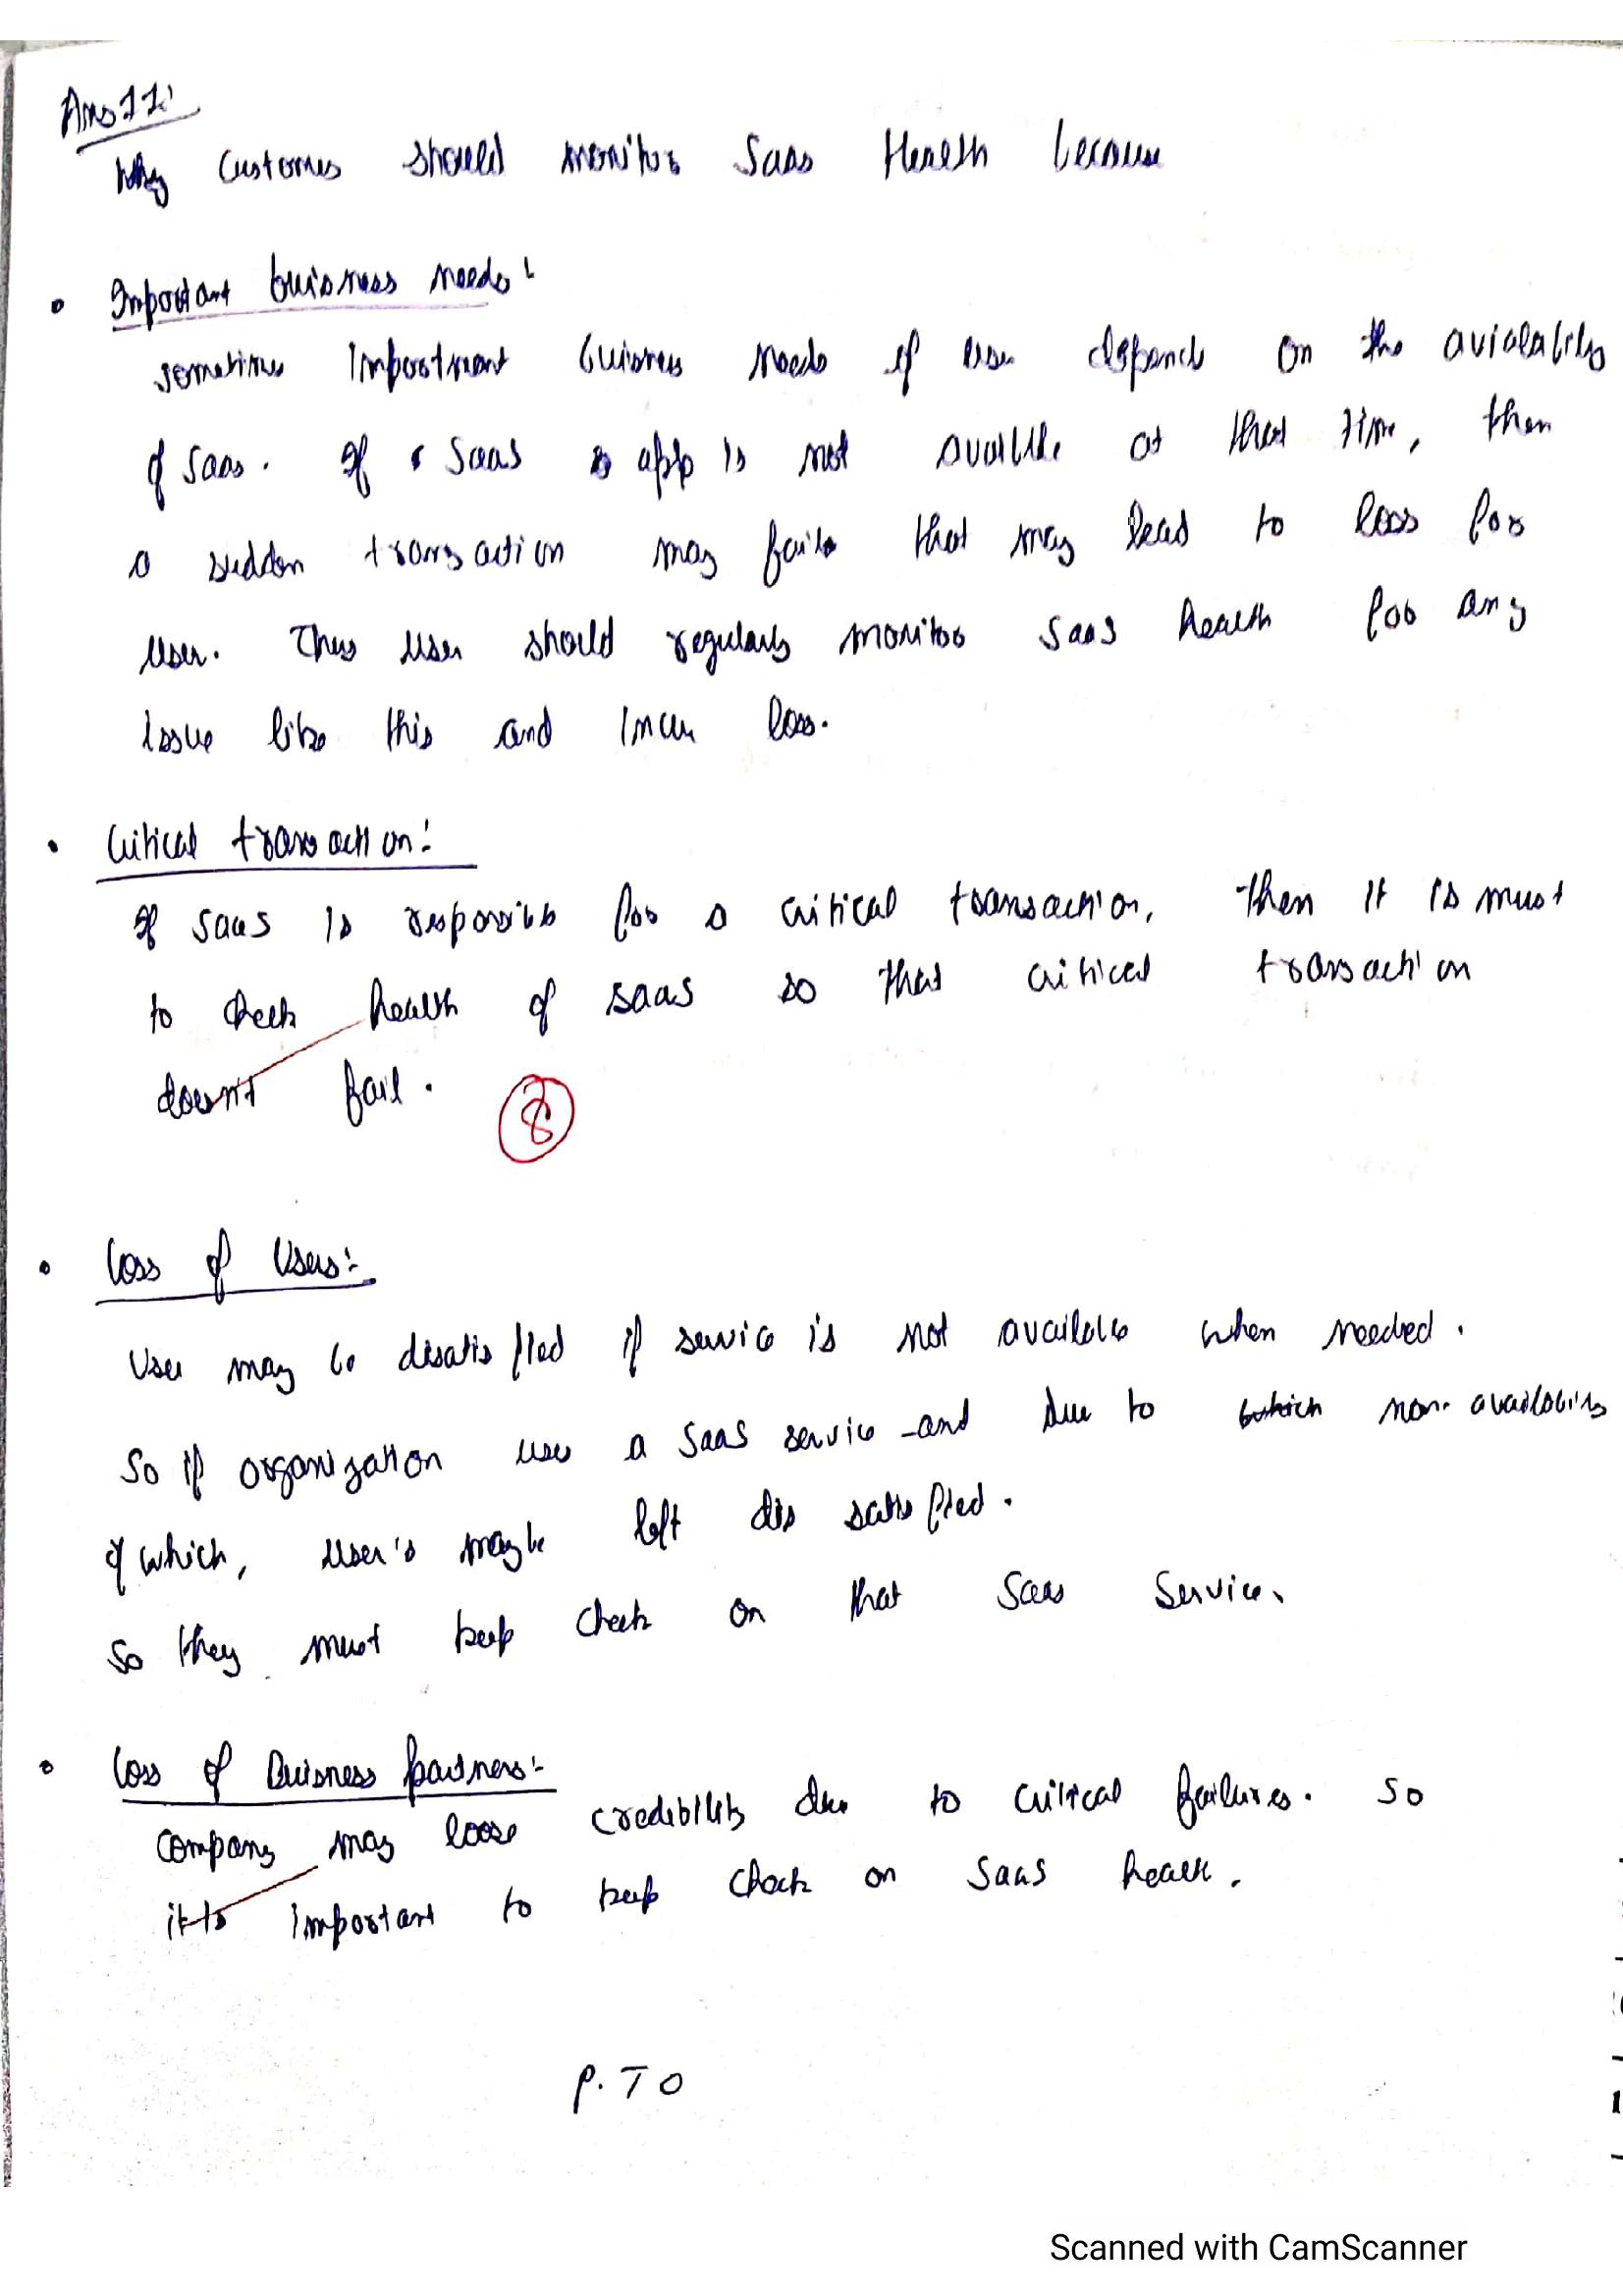 Ans 11:
Why Customers should monitor Saas Health because
• Important buisness needs:
sometimes Important buisness needs of user depends on the
of Saas. If Saas app is not at that time, then
a sudden transaction may fail that may lead to loss for
user. Thus user should regularly monitor Saas health for any
issue like this and incur loss.
• Critical transaction:
If saas is responsible for a critical transaction, then it is must
to check health of saas so that critical transaction
doesn't fail.
8
• Loss of Users:-
User may be disatisfied if service is not available when needed.
So if organization uses a Saas service and due to which non-availability
of which, user's maybe left dis satisfied.
So they must keep check on that Saas Service.
• Loss of Buisness partners:-
Company may loose credibility due to critical failures. So
it is important to keep check on Saas health.
P.T O
Scanned with CamScanner